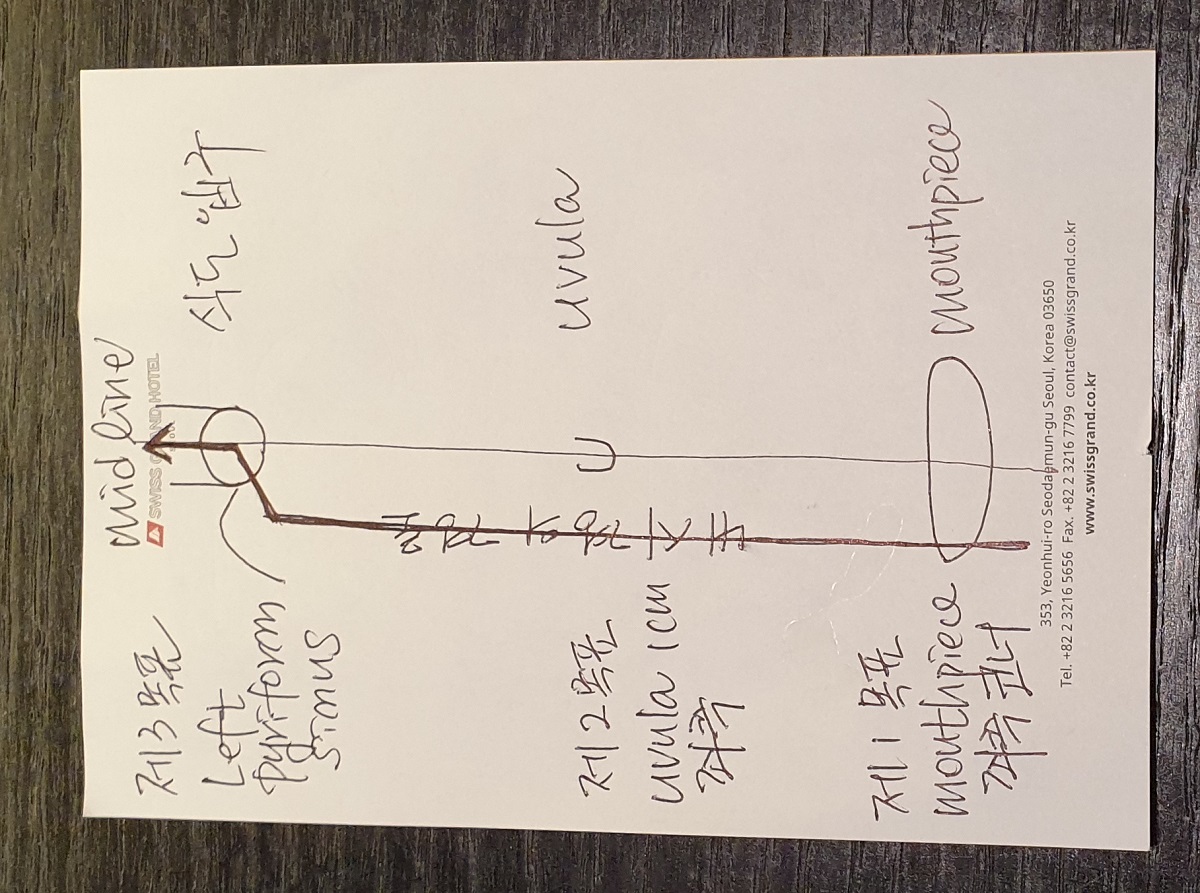 midline
SWISS GRAND HOTEL
제3목표
식도 입구
Left
pyriform
sinus
제2목표
uvula
uvula 1cm
좌측
제1목표
mouthpiece
mouthpiece
좌측 코너
353, Yeonhui-ro Seodaemun-gu Seoul, Korea 03650
Tel. +82 2 3216 5656 Fax. +82 2 3216 7799 contact@swissgrand.co.kr
www.swissgrand.co.kr